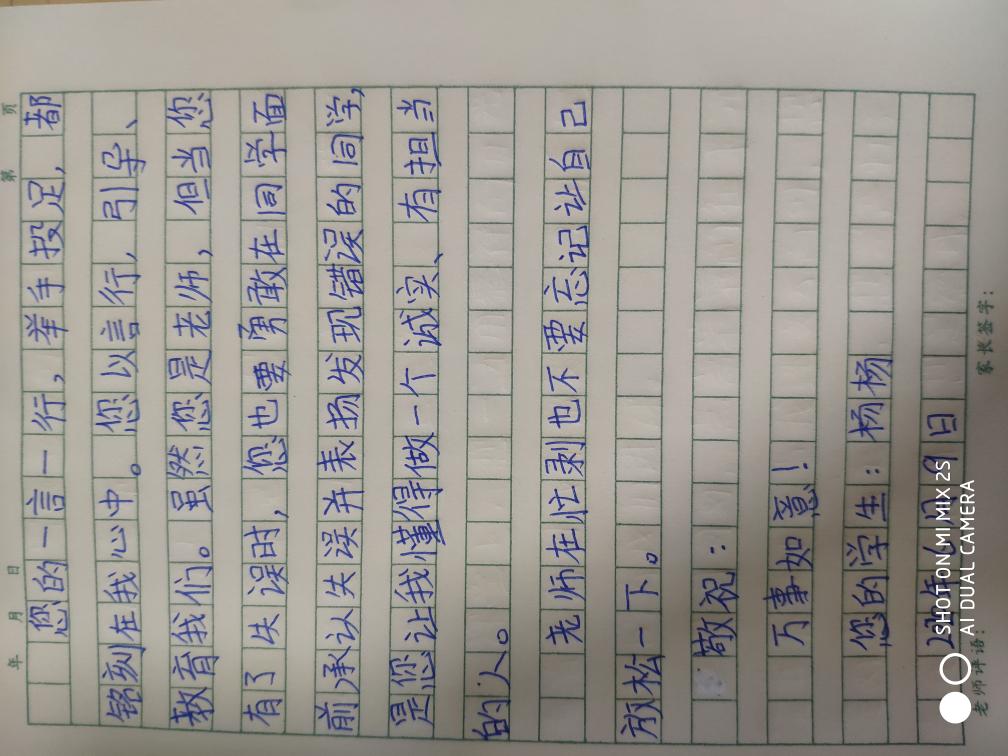 年 月 日 第 页
您的一言一行，举手投足，都
铭刻在我心中。您以言行，引导、
教育我们。虽然您是老师，但当您
有了失误时，您也要勇敢在同学面
前承认失误并表扬发现错误的同学，
是您让我懂得做一个诚实、有担当
的人。
老师在忙剥也不要忘记让自己
放松一下。
敬祝：
万事如意！
您的学生：杨杨
日
老师评语： 家长签字：
SHOT ON MI MIX 2S
AI DUAL CAMERA